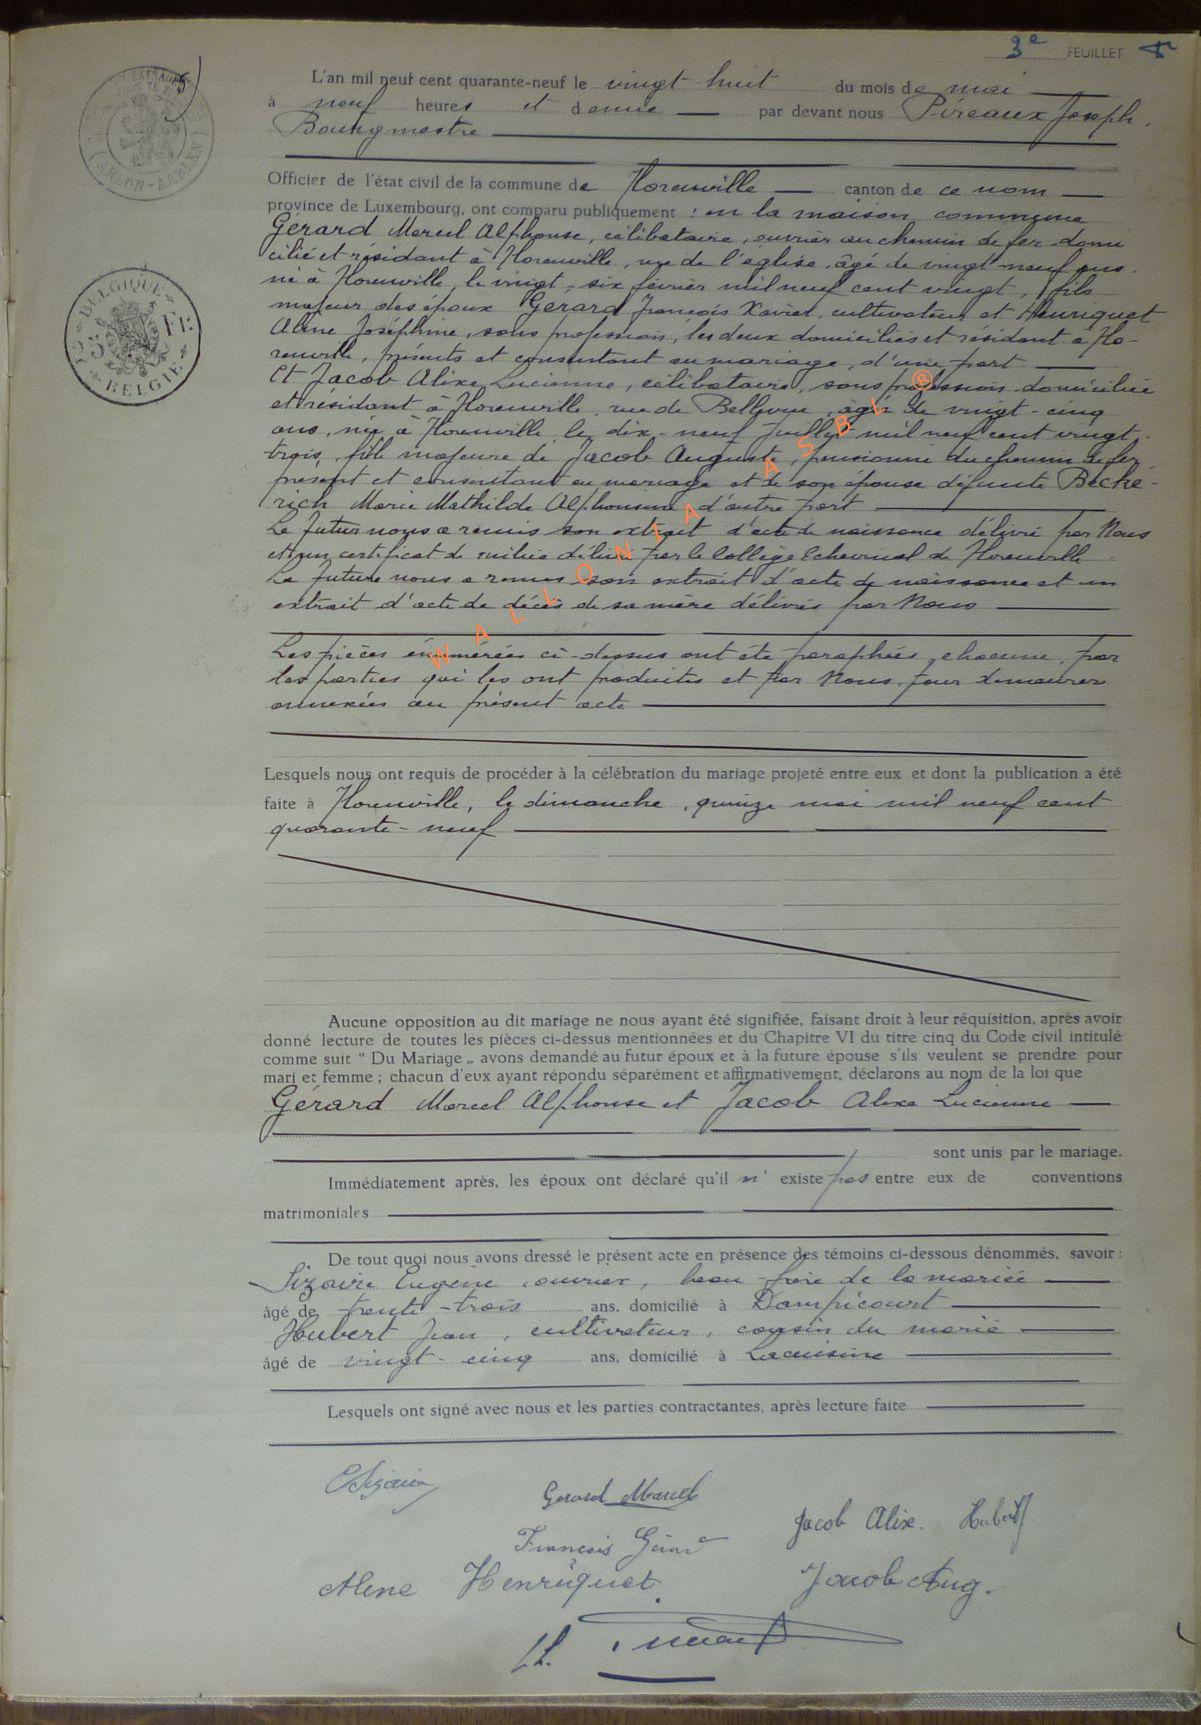 3e FEUILLET
5)
L'an mil neuf cent quarante-neuf le vingt huit du mois de mai
à neuf heures et demie par devant nous Pireaux Joseph.
Bourgmestre
Officier de l'état civil de la commune de Florenville canton de ce nom
province de Luxembourg, ont comparu publiquement : en la maison commune
Gérard Marcel Alphonse, célibataire, ouvrier au chemin de fer domi
cilié et résidant à Florenville, rue de l'église, âgé de vingt neuf ans.
né à Florenville, le vingt-six février mil neuf cent vingt, fils
majeur des époux Gerard François Xavier, cultivateur et Henriquet
Aline Joséphine, sans profession, les deux domiciliés et résidant à Flo-
renville, présents et consentant au mariage, d'une part
Et Jacob Alixe Lucienne, célibataire, sans profession domiciliée
et résidant à Florenville, rue de Bellevue, âgée de vingt-cinq
ans, née à Florenville le dix-neuf Juillet mil neuf cent vingt-
trois, fille majeure de Jacob Auguste, pensionné du chemin de fer
présent et consentant au mariage et de son épouse défunte Béché-
rich Marie Mathilde Alphonsine d'autre part
Le futur nous a remis son extrait d'acte de naissance délivré par Nous
et un certificat de milice délivré par le Collège Echevinal de Florenville.
La future nous a remis son extrait d'acte de naissance et un
extrait d'acte de décès de sa mère délivrés par Nous
Les pièces énumérées ci-dessus ont été paraphées, chacune, par
les parties qui les ont produites et par Nous, pour demeurer
annexées au présent acte
Lesquels nous ont requis de procéder à la célébration du mariage projeté entre eux et dont la publication a été
faite à Florenville, le dimanche, quinze mai mil neuf cent
quarante-neuf
Aucune opposition au dit mariage ne nous ayant été signifiée, faisant droit à leur réquisition, après avoir
donné lecture de toutes les pièces ci-dessus mentionnées et du Chapitre VI du titre cinq du Code civil intitulé
comme suit “ Du Mariage „ avons demandé au futur époux et à la future épouse s'ils veulent se prendre pour
mari et femme ; chacun d'eux ayant répondu séparément et affirmativement, déclarons au nom de la loi que
Gérard Marcel Alphonse et Jacob Alixe Lucienne
sont unis par le mariage.
Immédiatement après, les époux ont déclaré qu'il n' existe pas entre eux de conventions
matrimoniales
De tout quoi nous avons dressé le présent acte en présence des témoins ci-dessous dénommés, savoir :
Sizaire Eugène, ouvrier, beau-frère de la mariée
âgé de trente-trois ans, domicilié à Dampicourt
Hubert Jean, cultivateur, cousin du marié
âgé de vingt-cinq ans, domicilié à Lacuisine
Lesquels ont signé avec nous et les parties contractantes, après lecture faite
ESizaire
Gerard Marcel
Jacob Alixe. Hubert J
François Gérard
Aline Henriquet
Jacob Aug.
BELGIQUE
BELGIE
ARLON-AARLEN
WALLONIA ASBL ®